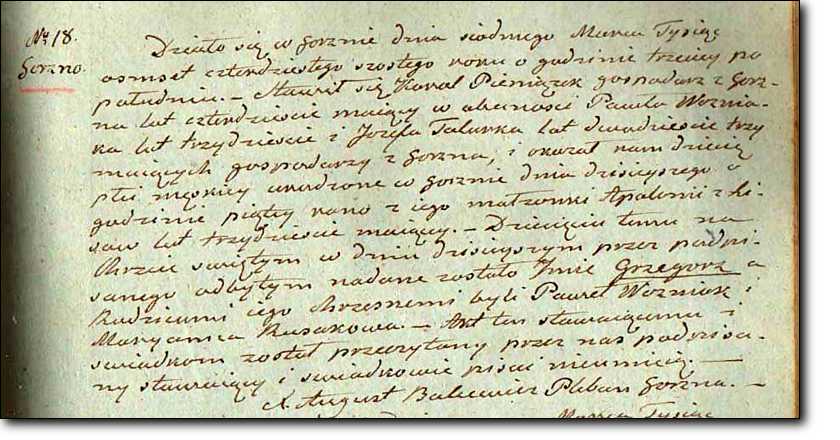 Nr 18.
Gorzno.
Działo się w Gorznie dnia siódmego Marca Tysiąc
osmset czterdziestego szostego roku o godzinie trzeciey po
południu. – Stawił się Karol Pieniązek gospodarz z Gorz-
na lat czterdzieście maiący w obecnosci Pawła Woznia-
ka lat trzydzieście i Jozefa Talurka lat dwadzieście trzy
maiących gospodarzy z Gorzna, i okazał nam dziecię
płci męskiey urodzone w Gorznie dnia dzisieyszego o
godzinie piątey rano z iego małżonki Apolonii z Li-
sow lat trzydzieście maiącey. – Dziecięciu temu na
Chrzcie świętym w dniu dzisieyszym przez podpi-
sanego odbytym nadane zostało Imie Grzegorz a
Rodzicami iego chrzesnemi byli Paweł Wozniak i
Maryanna Rusakowa. – Akt ten stawaiącemu i
swiadkom został przeczytany przez nas podpisa-
ny stawaiący i swiadkowie pisać nieumieią. –
X. August Pleban Gorzna. –
Marca Tysiąc